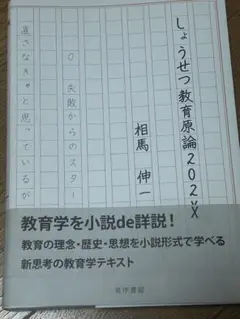 しょうせつ教育原論202X
相馬伸一
0 失敗からのスター
直さなきゃと思っているが
教育学を小説de詳説！
教育の理念・歴史・思想を小説形式で学べる
新思考の教育学テキスト
晃洋書房